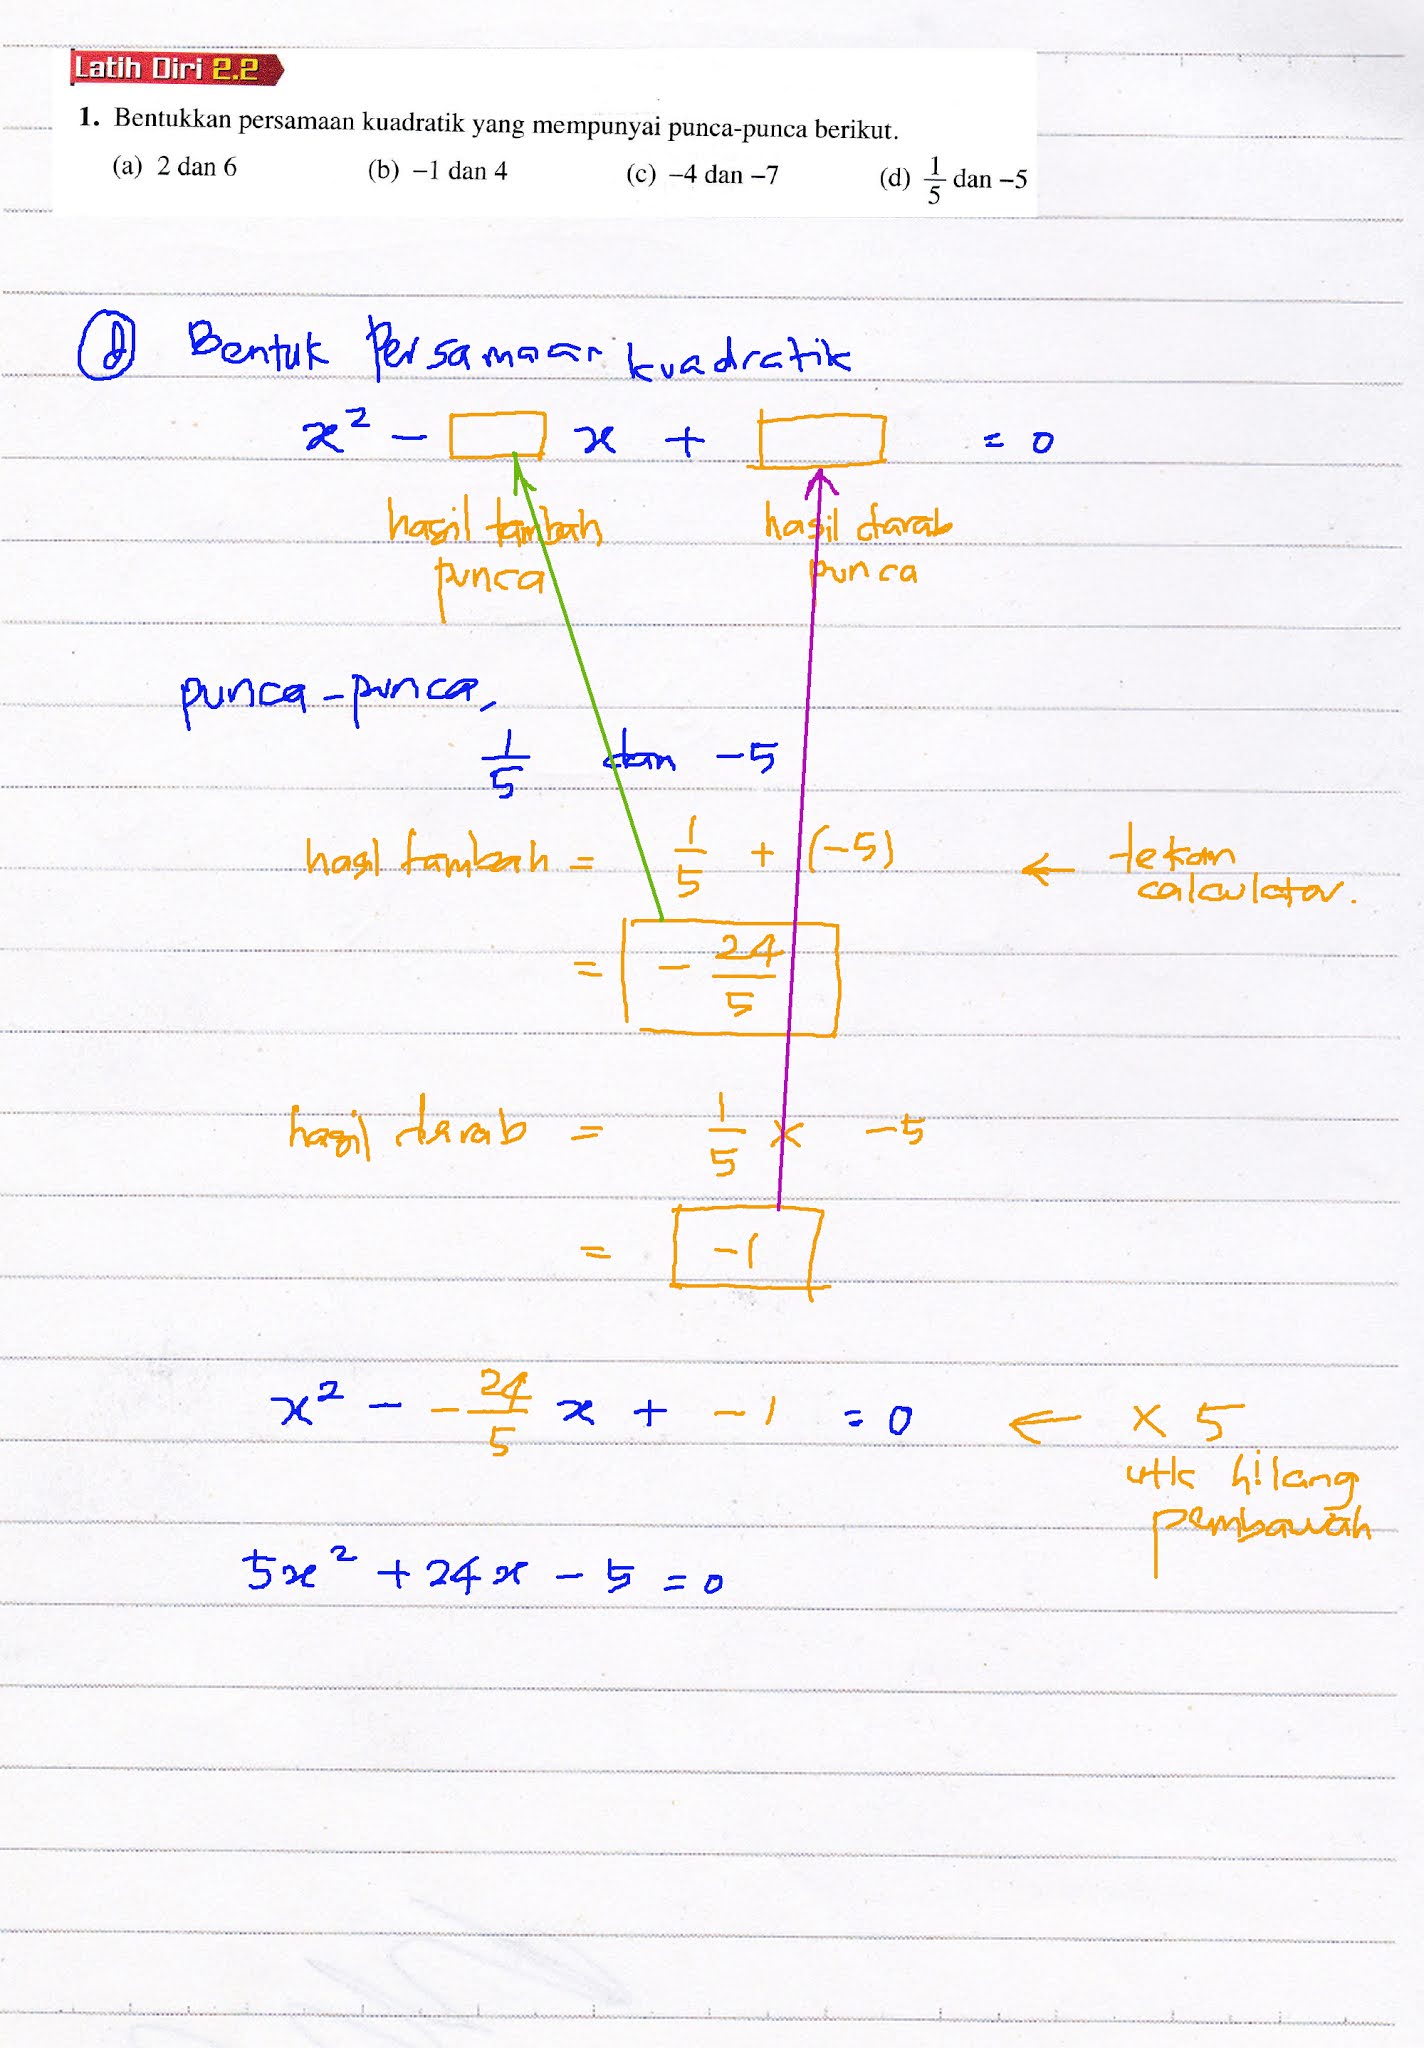 Latih Diri 2.2
1. Bentukkan persamaan kuadratik yang mempunyai punca-punca berikut.
(a) 2 dan 6 (b) −1 dan 4 (c) −4 dan −7 (d) 1/5 dan −5
(d) Bentuk Persamaan kuadratik
x² − □ x + □ = 0
hasil tambah punca hasil darab punca
punca-punca,
1/5 dan −5
hasil tambah = 1/5 + (−5) ← tekan calculator.
= −24/5
hasil darab = 1/5 × −5
= −1
x² − −24/5 x + −1 = 0 ← × 5
utk hilang
pembawah
5x² + 24x − 5 = 0